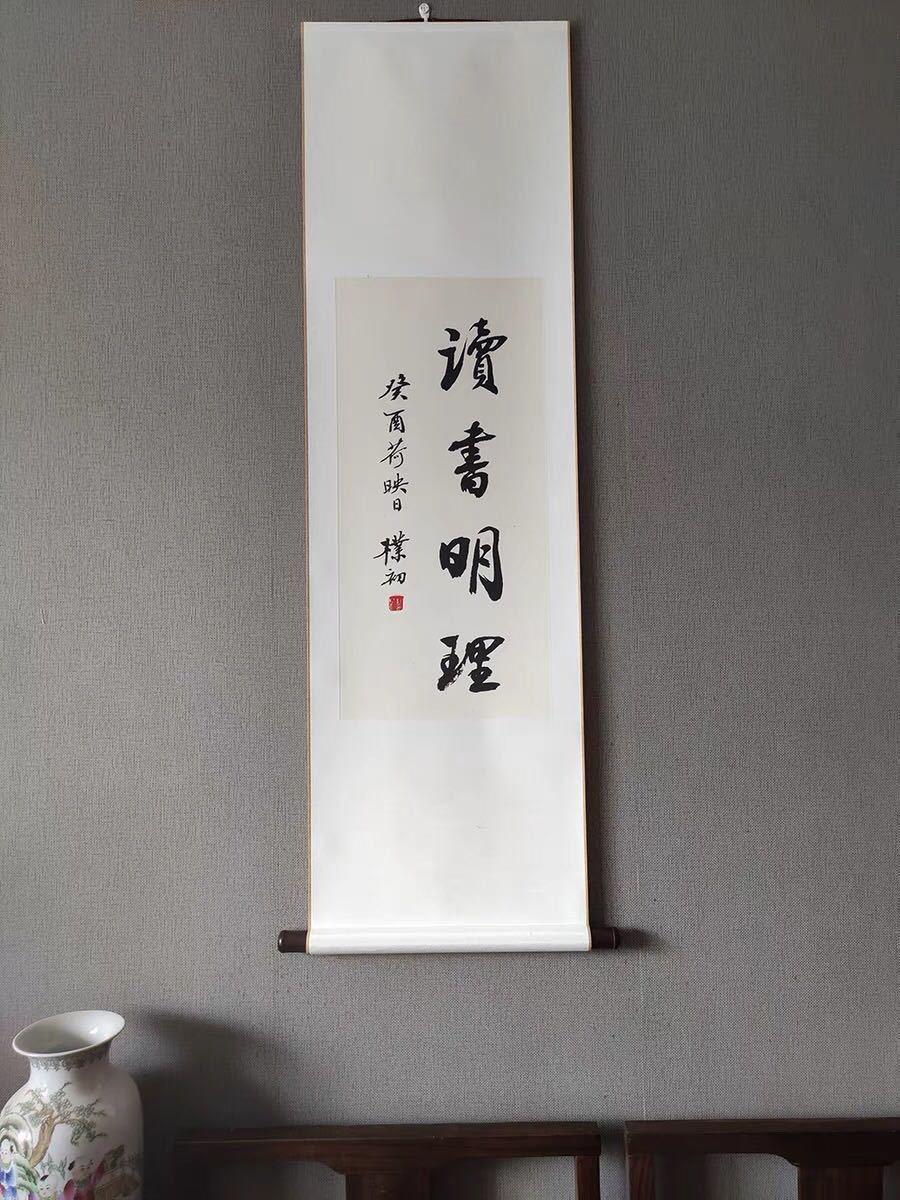 讀書明理
癸酉荷映日 樸初